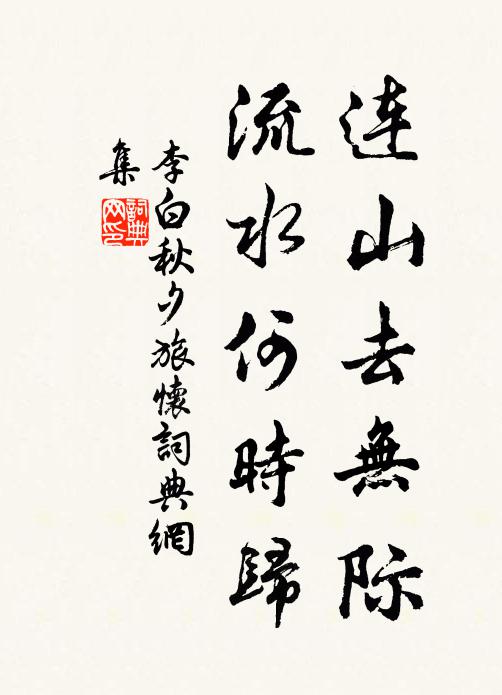 連山去無际
流水何時歸
李白秋夕旅懷詞典網
集
詞典
网印